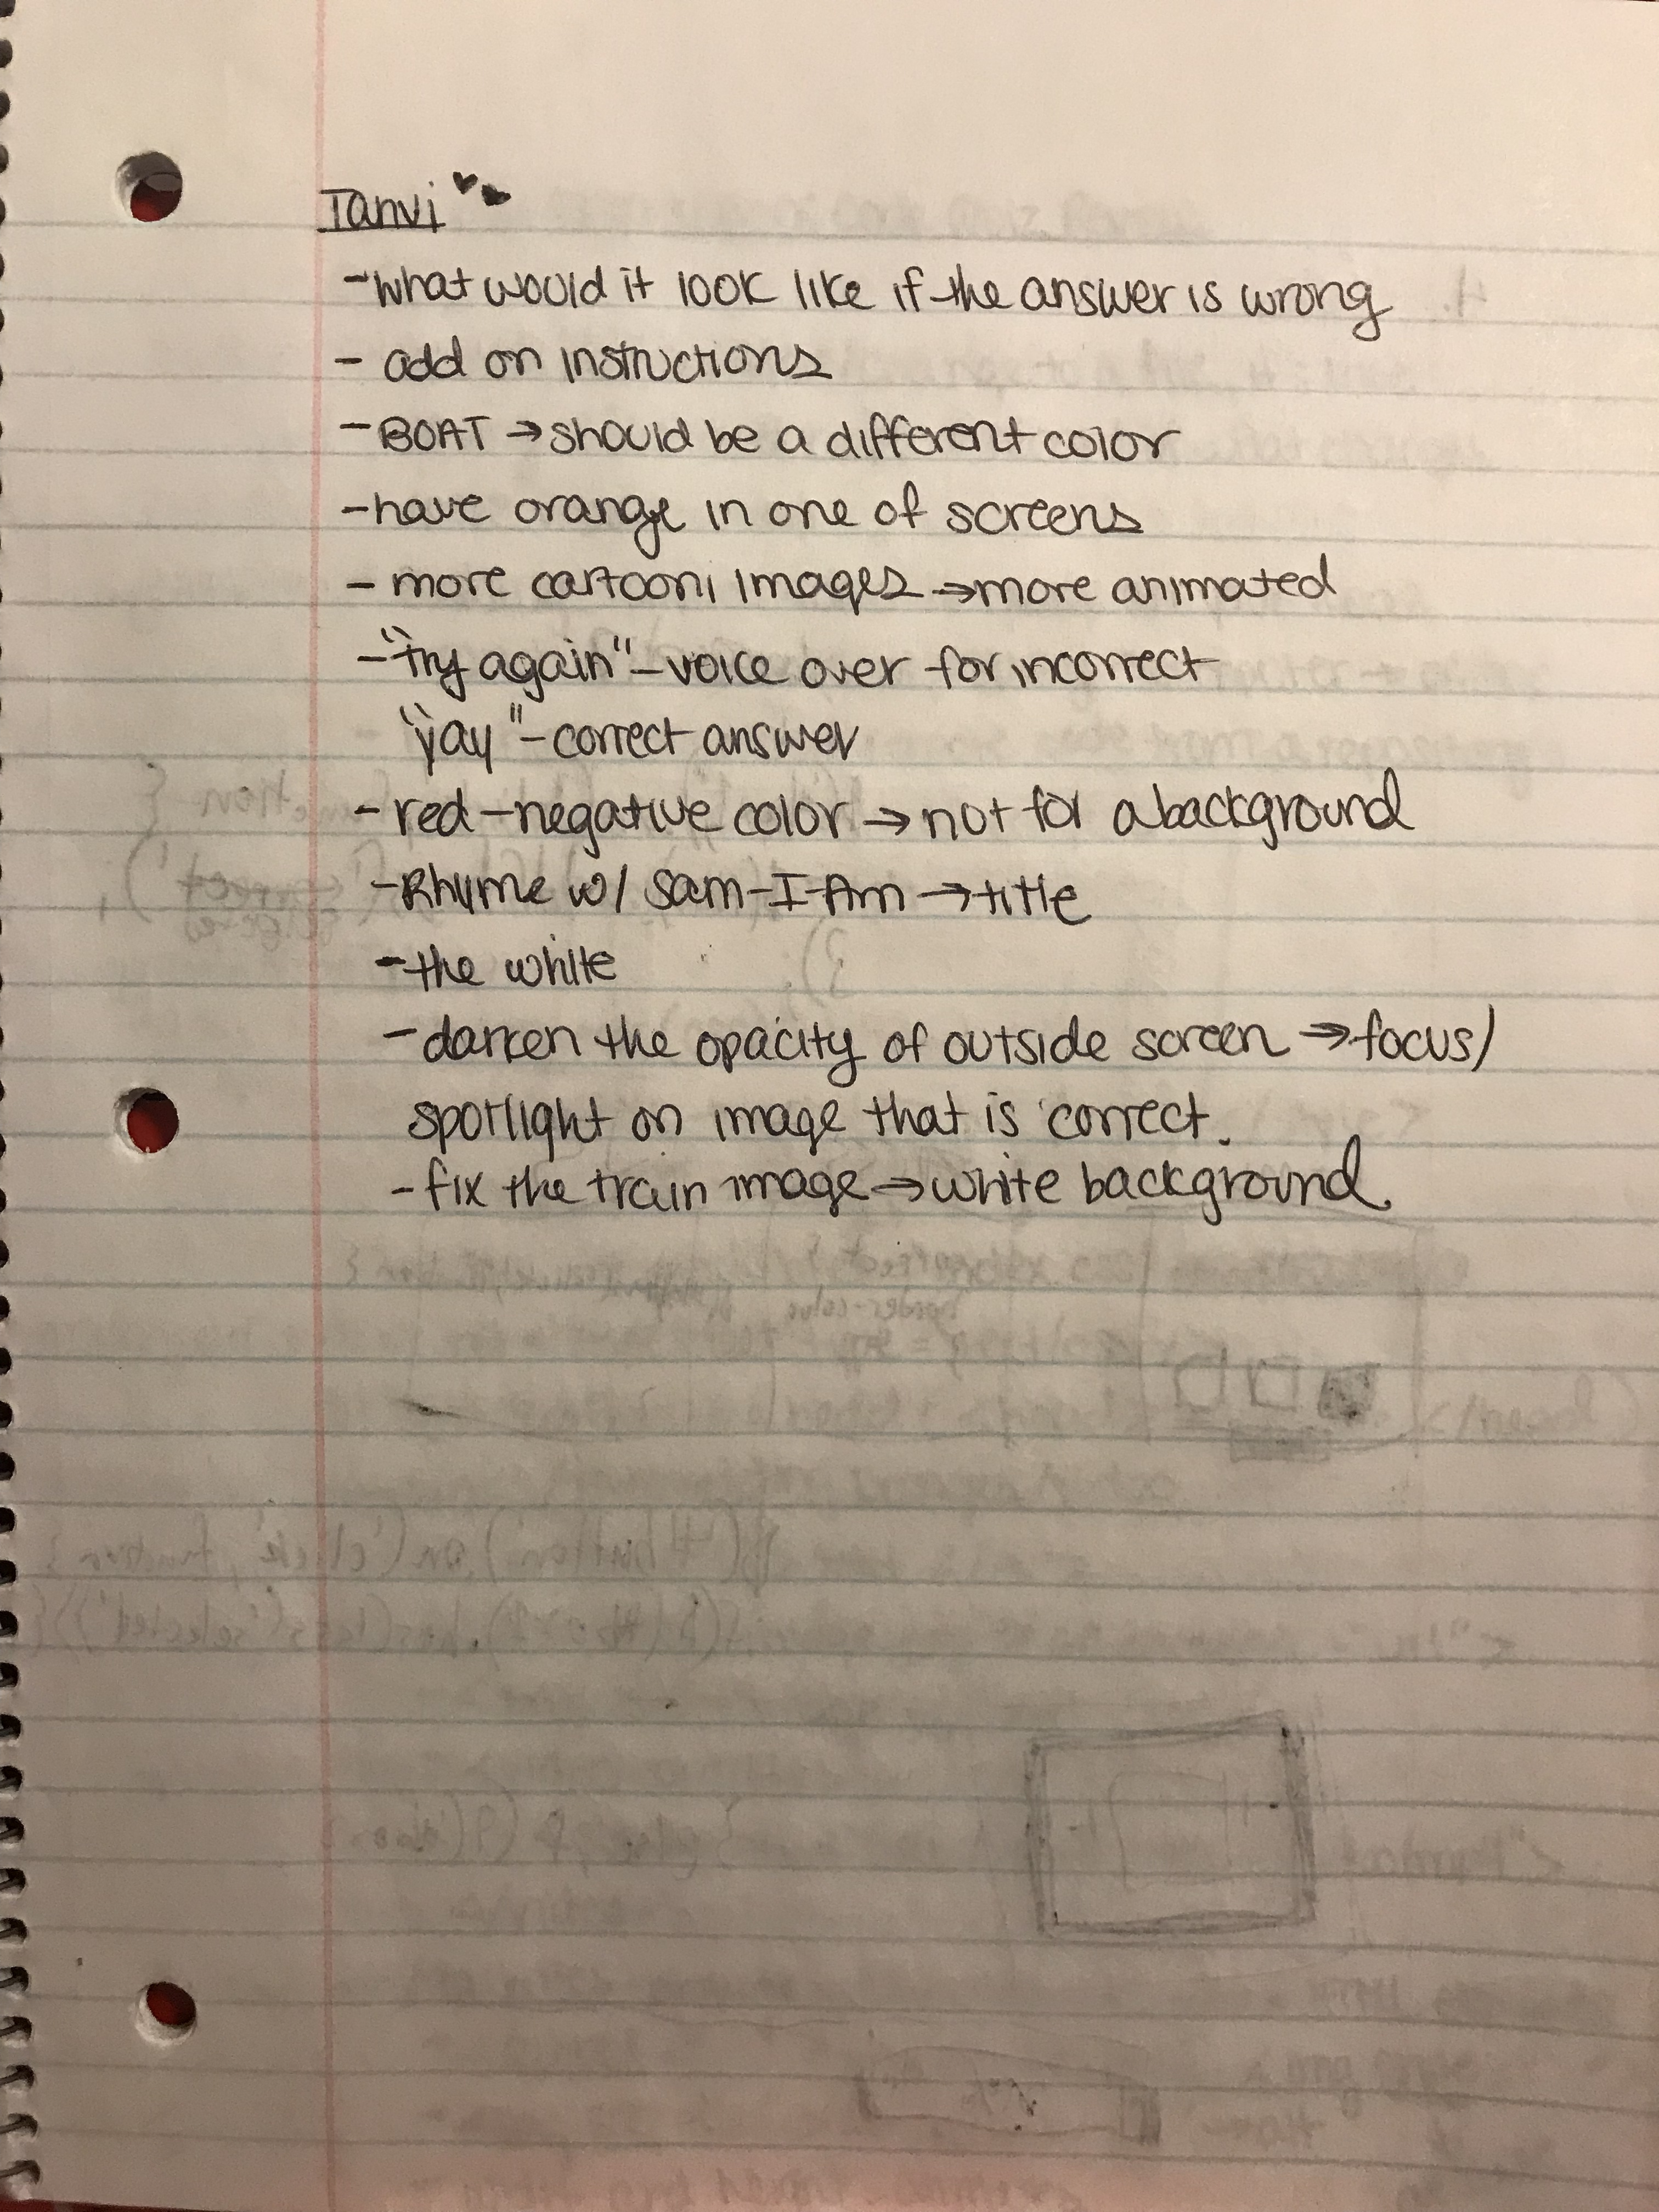 Tanvi
- what would it look like if the answer is wrong
- add on instructions
- BOAT → should be a different color
- have orange in one of screens
- more cartooni images → more animated
- "try again" - voice over for incorrect
"yay" - correct answer
- red - negative color → not for a background
- Rhyme w/ Sam-I-Am → title
- the white
- darken the opacity of outside screen → focus/
spotlight on image that is correct.
- fix the train image → white background.